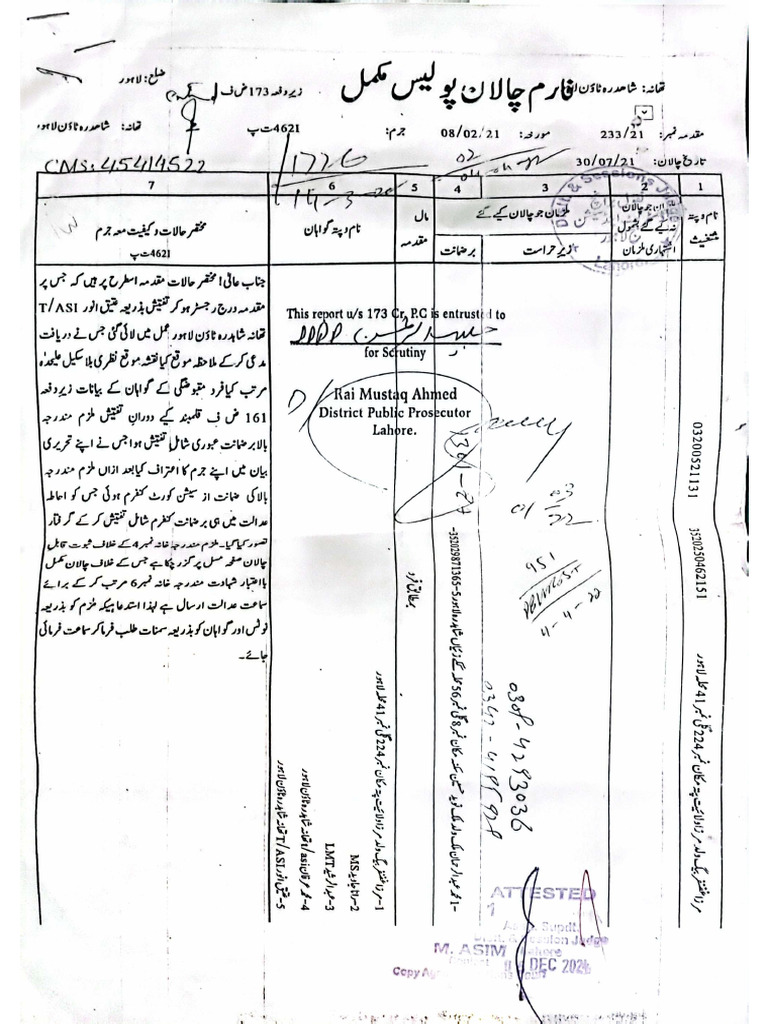 ضلع: لاہور
زیر دفعہ 173 ض ف
فارم چالان پولیس مکمل
تھانہ: شاہدرہ ٹاؤن
تھانہ: شاہدرہ ٹاؤن لاہور
4621 ت پ
جرم:
مورخہ: 08/02/21
مقدمہ نمبر: 233/21
CMS: 45414522
1776
تاریخ چالان: 30/07/21
7
6
5
4
3
2
1
مختصر حالات و کیفیت معہ جرم
4621 ت پ
نام و پتہ گواہان
مال
مقدمہ
ملزمان جو چالان کیے گئے
بر ضمانت
زیر حراست
ان جو چالان
نہ کیے گئے بشمول
اشتہاری ملزمان
نام و پتہ
مستغیث
جناب عالی! مختصر حالات مقدمہ اسطرح پر ہیں کہ جس پر
مقدمہ درج رجسٹر ہو کر تفتیش بذریعہ عتیق انور T/ASI
تھانہ شاہدرہ ٹاؤن لاہور عمل میں لائی گئی جس نے دریافت
مدعی کر کے ملاحظہ موقع کیا نقشہ موقع نظری بلا سکیل علیحدہ
مرتب کیا فرد مقبوضگی کے گواہان کے بیانات زیر دفعہ
161 ض ف قلمبند کیے دوران تفتیش ملزم مندرجہ
بالا بر ضمانت عبوری شامل تفتیش ہوا جس نے اپنے تحریری
بیان میں اپنے جرم کا اعتراف کیا بعد ازاں ملزم مندرجہ
بالا کی ضمانت از سیشن کورٹ کنفرم ہوئی جس کو احاطہ
عدالت میں ہی بر ضمانت کنفرم شامل تفتیش کر کے گرفتار
تصور کیا گیا۔ ملزم مندرجہ خانہ نمبر 4 کے خلاف ثبوت قابل
چالان صفحہ مسل پر گزر چکا ہے جس کے خلاف چالان مکمل
بااعتبار شہادت مندرجہ خانہ نمبر 6 مرتب کر کے برائے
سماعت عدالت ارسال ہے لہذا استدعا ہیکہ ملزم کو بذریعہ
نوٹس اور گواہان کو بذریعہ سمنات طلب فرما کر سماعت فرمائی
جائے۔
This report u/s 173 Cr, P.C is entrusted to
for Scrutiny
Rai Mustaq Ahmed
District Public Prosecutor
Lahore.
01 03
22
951
4-4-22
1- مرزا غضنفر بیگ ولد مرزا ولائیت پتہ مکان نمبر 224 گلی نمبر 41 محلہ لاہور
2- رانا جاوید MS
3- عبدالرشید LMT
4- محمد عرفان t/asi تھانہ شاہدرہ ٹاؤن لاہور
5- عتیق انور T/ASI تھانہ شاہدرہ ٹاؤن لاہور
بمطابق فرد
35202987136​5-5
0308-4293036
مرزا غضنفر بیگ ولد مرزا ولائیت پتہ مکان نمبر 224 گلی نمبر 41 محلہ لاہور
3520250462151
03200521131
ATTESTED
M. ASIM
DEC 2024